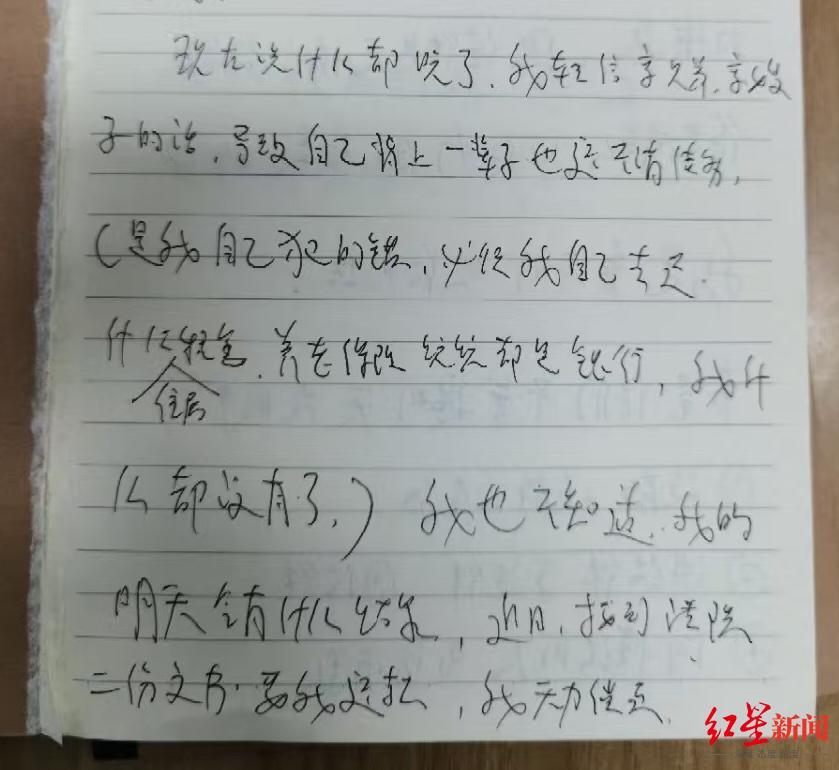 现在说什么都晚了，我轻信
子的话，导致自己背上一辈子也还不清债务，
（是我自己犯的错，必须我自己去还.
什么租金，养老保险统统都是银行，我什
住房
么都没有了，）我也不知道，我的
明天会有什么结果，近日，接到法院
二份文书，要我还款，我无力偿还.
红星新闻